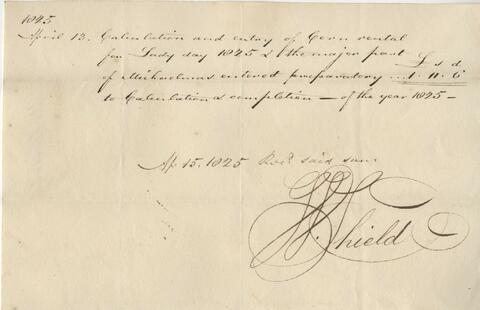 1825
April 13. Calculation and entry of Corn rental
for Lady day 1825 & the major part £ s d
of Michaelmas entered preparatory ... 1. 11. 6
to Calculation & completion — of the year 1825 —
Ap. 15. 1825 Recd said sum
W Shield